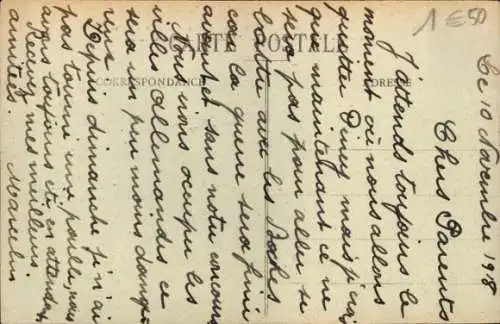 1 E 50
CARTE POSTALE
CORRESPONDANCE
ADRESSE
Le 10 Novembre 1918
Chers Parents
J'attends toujours le
moment où nous allons
quitter mais je crois
que maintenant ce ne
sera pas pour aller se
battre avec les Boches
car la guerre sera fini
avant et sans notre concours
Nous irons occuper les
villes allemandes ce
sera un peu moins dange
reux
Depuis dimanche je n'ai
pas touché une parelle, nous
avons toujours été en attendant
Recevez mes meilleurs
amitiés. Marcelin